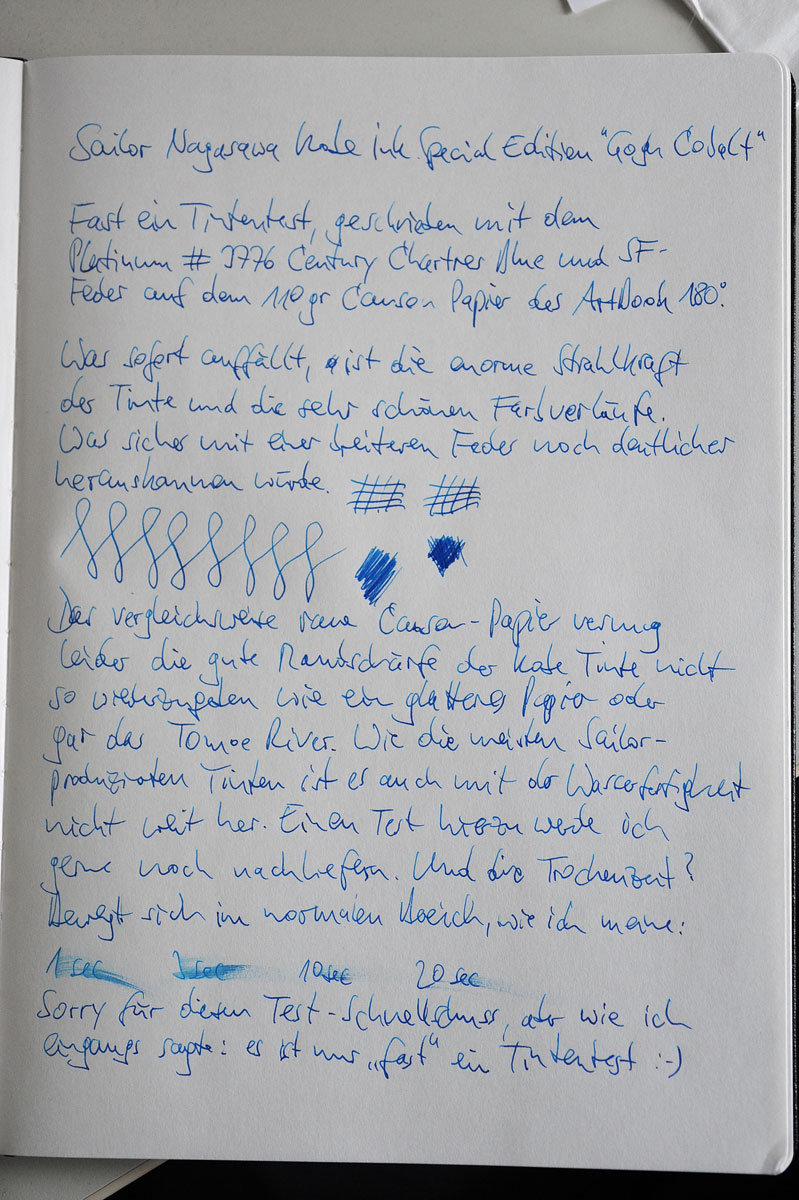 Sailor Nagasawa Kobe Ink Special Edition "Gogh Cobalt"
Fast ein Tintentest, geschrieben mit dem
Platinum # 3776 Century Chartres Blue und SF-
Feder auf dem 110gr Canson Papier des ArtBook 180°.
Was sofort auffällt, ist die enorme Strahlkraft
der Tinte und die sehr schönen Farbverläufe.
Was sicher mit einer breiteren Feder noch deutlicher
herauskommen würde.
Das vergleichsweise raue Canson-Papier vermag
leider die gute Randschärfe der Kobe Tinte nicht
so wiederzugeben wie ein glatteres Papier oder
gar das Tomoe River. Wie die meisten Sailor-
produzierten Tinten ist es auch mit der Wasserfestigkeit
nicht weit her. Einen Test hierzu werde ich
gerne noch nachliefern. Und die Trockenzeit?
Bewegt sich im normalen Bereich, wie ich meine:
1 sec sec 10 sec 20 sec
Sorry für diesen Test-Schnellschuss, aber wie ich
eingangs sagte: es ist nur „fast“ ein Tintentest :-)